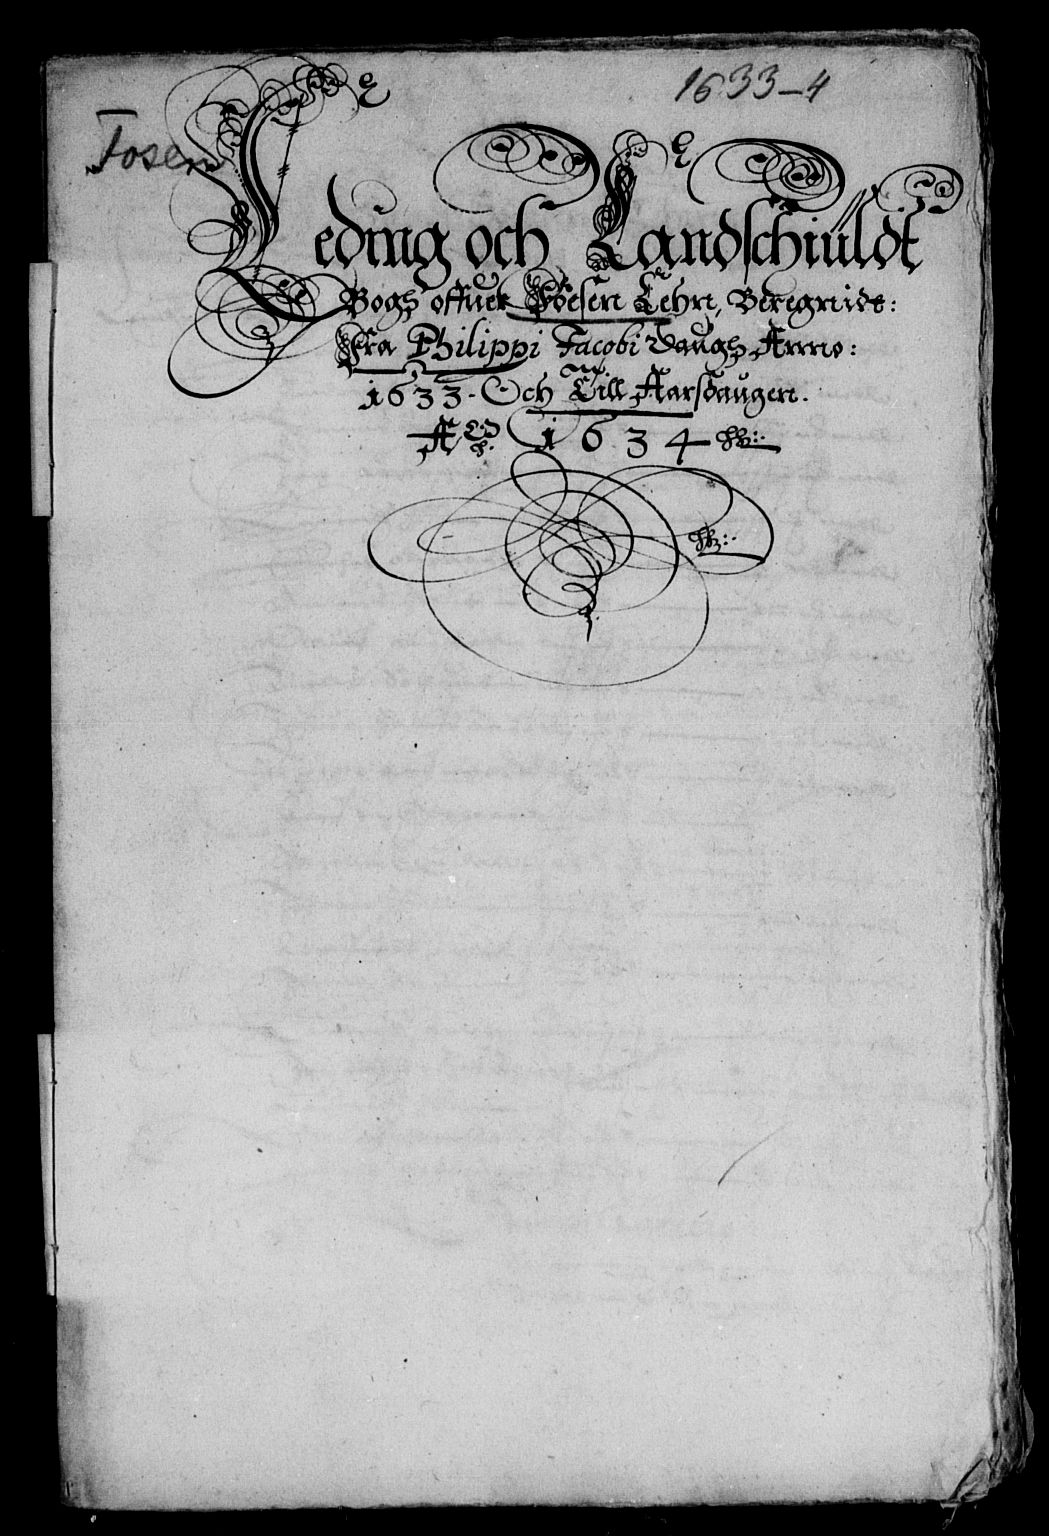 1633-4
Fosen
Leding och Landschiuldt
Bogh offuer Foesen Lehn, Beregnidt:
Fra Philippi Jacobi Daugh Anno:
1633. Och Till Aarsdaugen.
1634